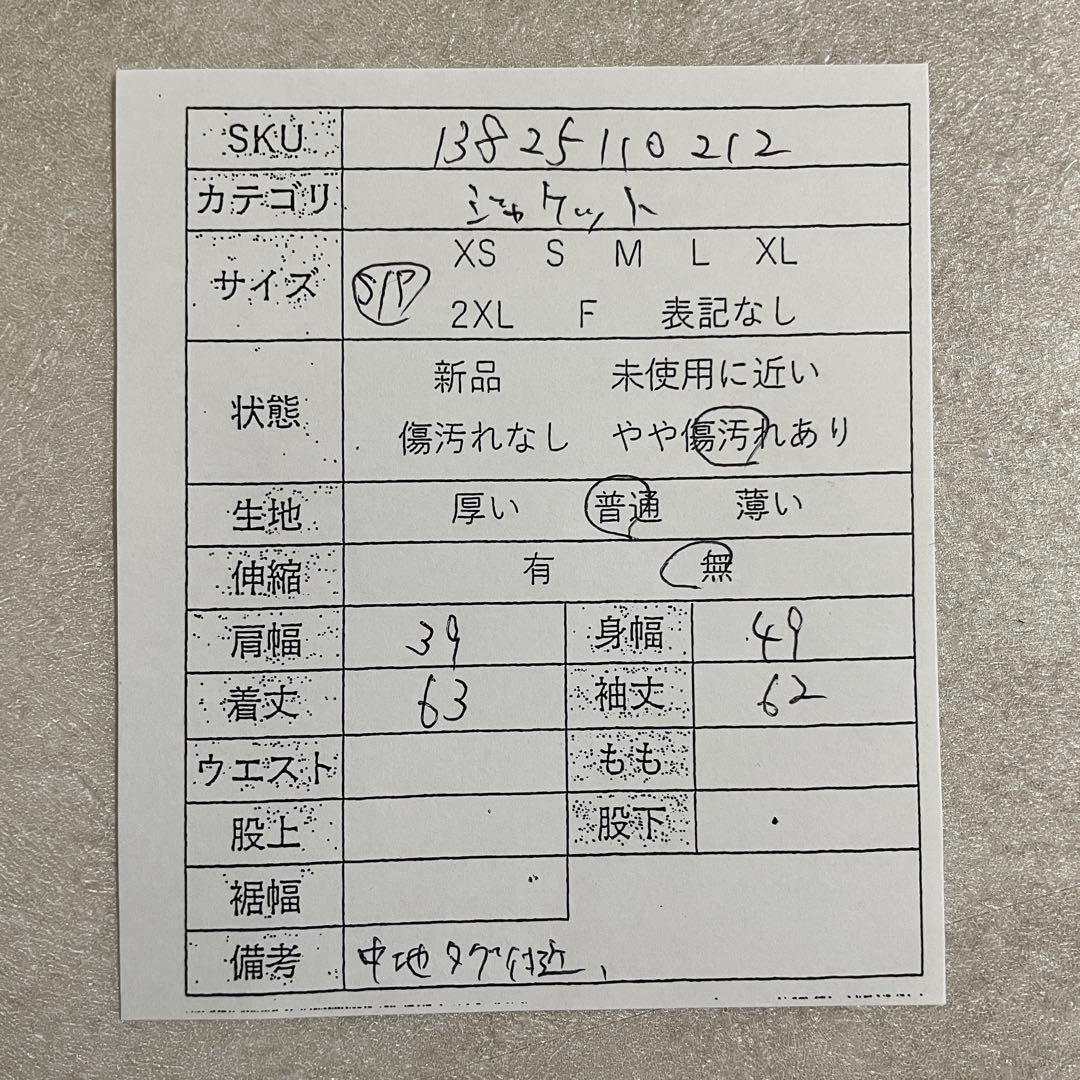 SKU 13825110212
カテゴリ ジャケット
サイズ XS S M L XL
S/P 2XL F 表記なし
状態 新品 未使用に近い
傷汚れなし やや傷汚れあり
生地 厚い 普通 薄い
伸縮 有 無
肩幅 39 身幅 49
着丈 63 袖丈 62
ウエスト もも
股上 股下
裾幅
備考 中地タグ付近、